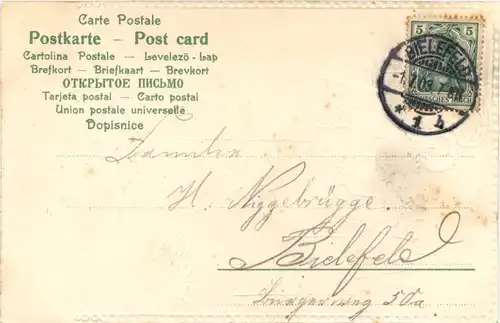 Carte Postale
Postkarte – Post card
Cartolina Postale – Levelező-Lap
Brefkort – Briefkaart – Brevkort
ОТКРЫТОЕ ПИСЬМО
Tarjeta postal – Carto postal
Union postale universelle
Dopisnice
5 5
BIELEFELD
* 1 b
Familie
H. Niggebrügge
Bielefeld
Bürgerweg 50a